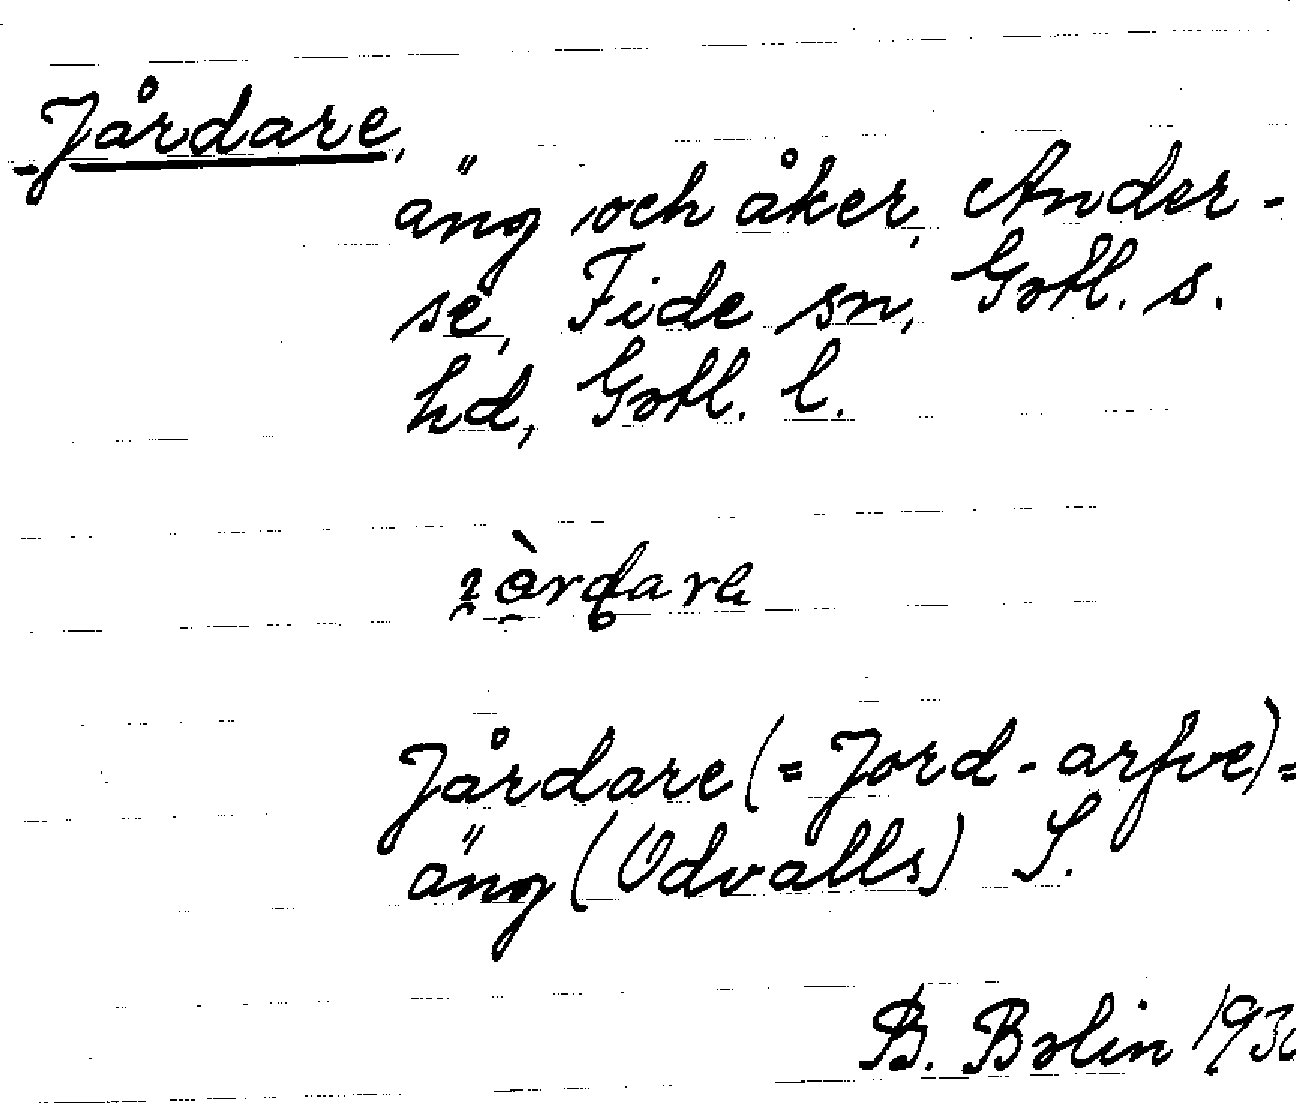 Jårdare,
äng och åker, Ander-
se, Fide sn, Gotl. s.
hd, Gotl. l.
Jårdare (= Jord-arfve) =
äng (Odvalls) S.
B. Bolin